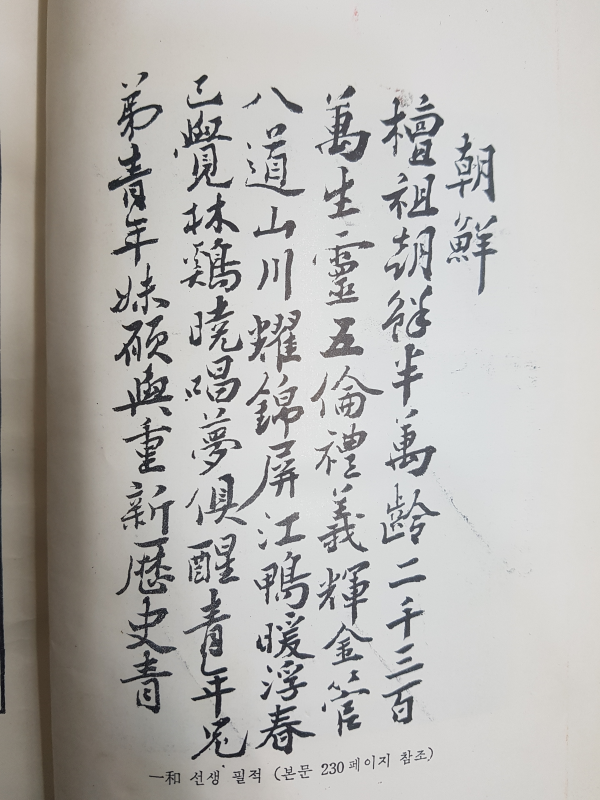 朝鮮
檀祖朝鮮半萬齡二千三百
萬生靈五倫禮義輝金管
八道山川耀錦屏江鴨暖浮春
已覺林鷄曉唱夢俱醒青年兄
弟青年妹願與重新歷史青
一和 선생 필적 (본문 230 페이지 참조)